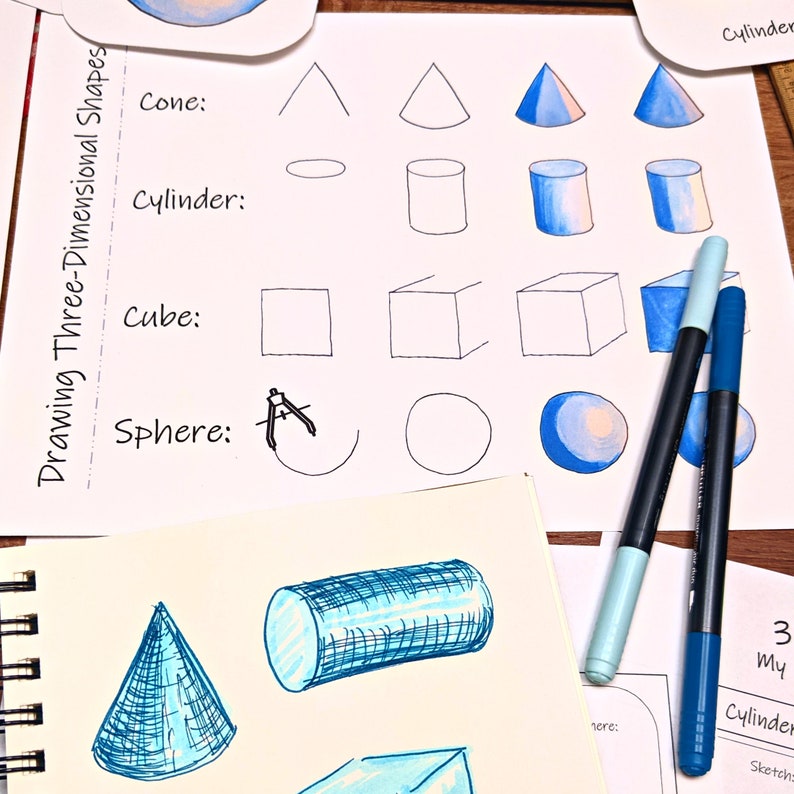 Cylinder
Drawing Three-Dimensional Shapes
Cone:
Cylinder:
Cube:
Sphere:
3
My
Cylinder
here:
Sketch: